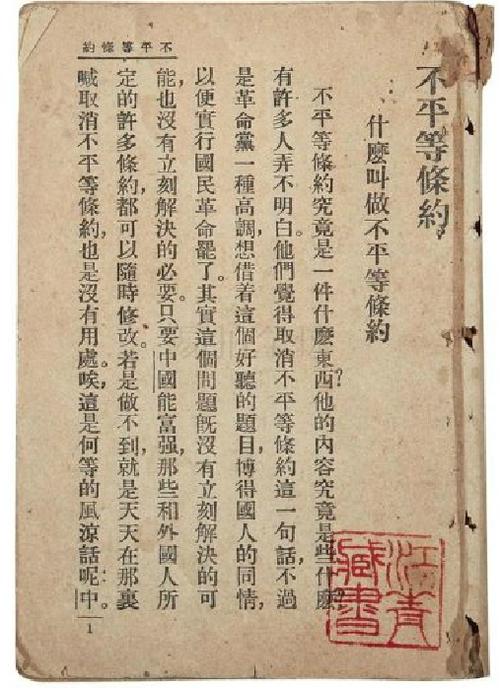 不平等條約
不平等條約
一、什麽叫做不平等條約
不平等條約究竟是一件什麽東西?他的內容究竟是些什麽?
有許多人弄不明白。他們覺得取消不平等條約這一句話,不過
是革命黨一種高調,想借着這個好聽的題目,博得國人的同情,
以便實行國民革命罷了。其實這個問題旣沒有立刻解決的可
能,也沒有立刻解決的必要。只要中國能富强,那些和外國人所
定的許多條約,都可以隨時修改。若是做不到,就是天天在那裏
喊取消不平等條約,也是沒有用處。唉,這是何等的風凉話呢。中
1
江青
藏書